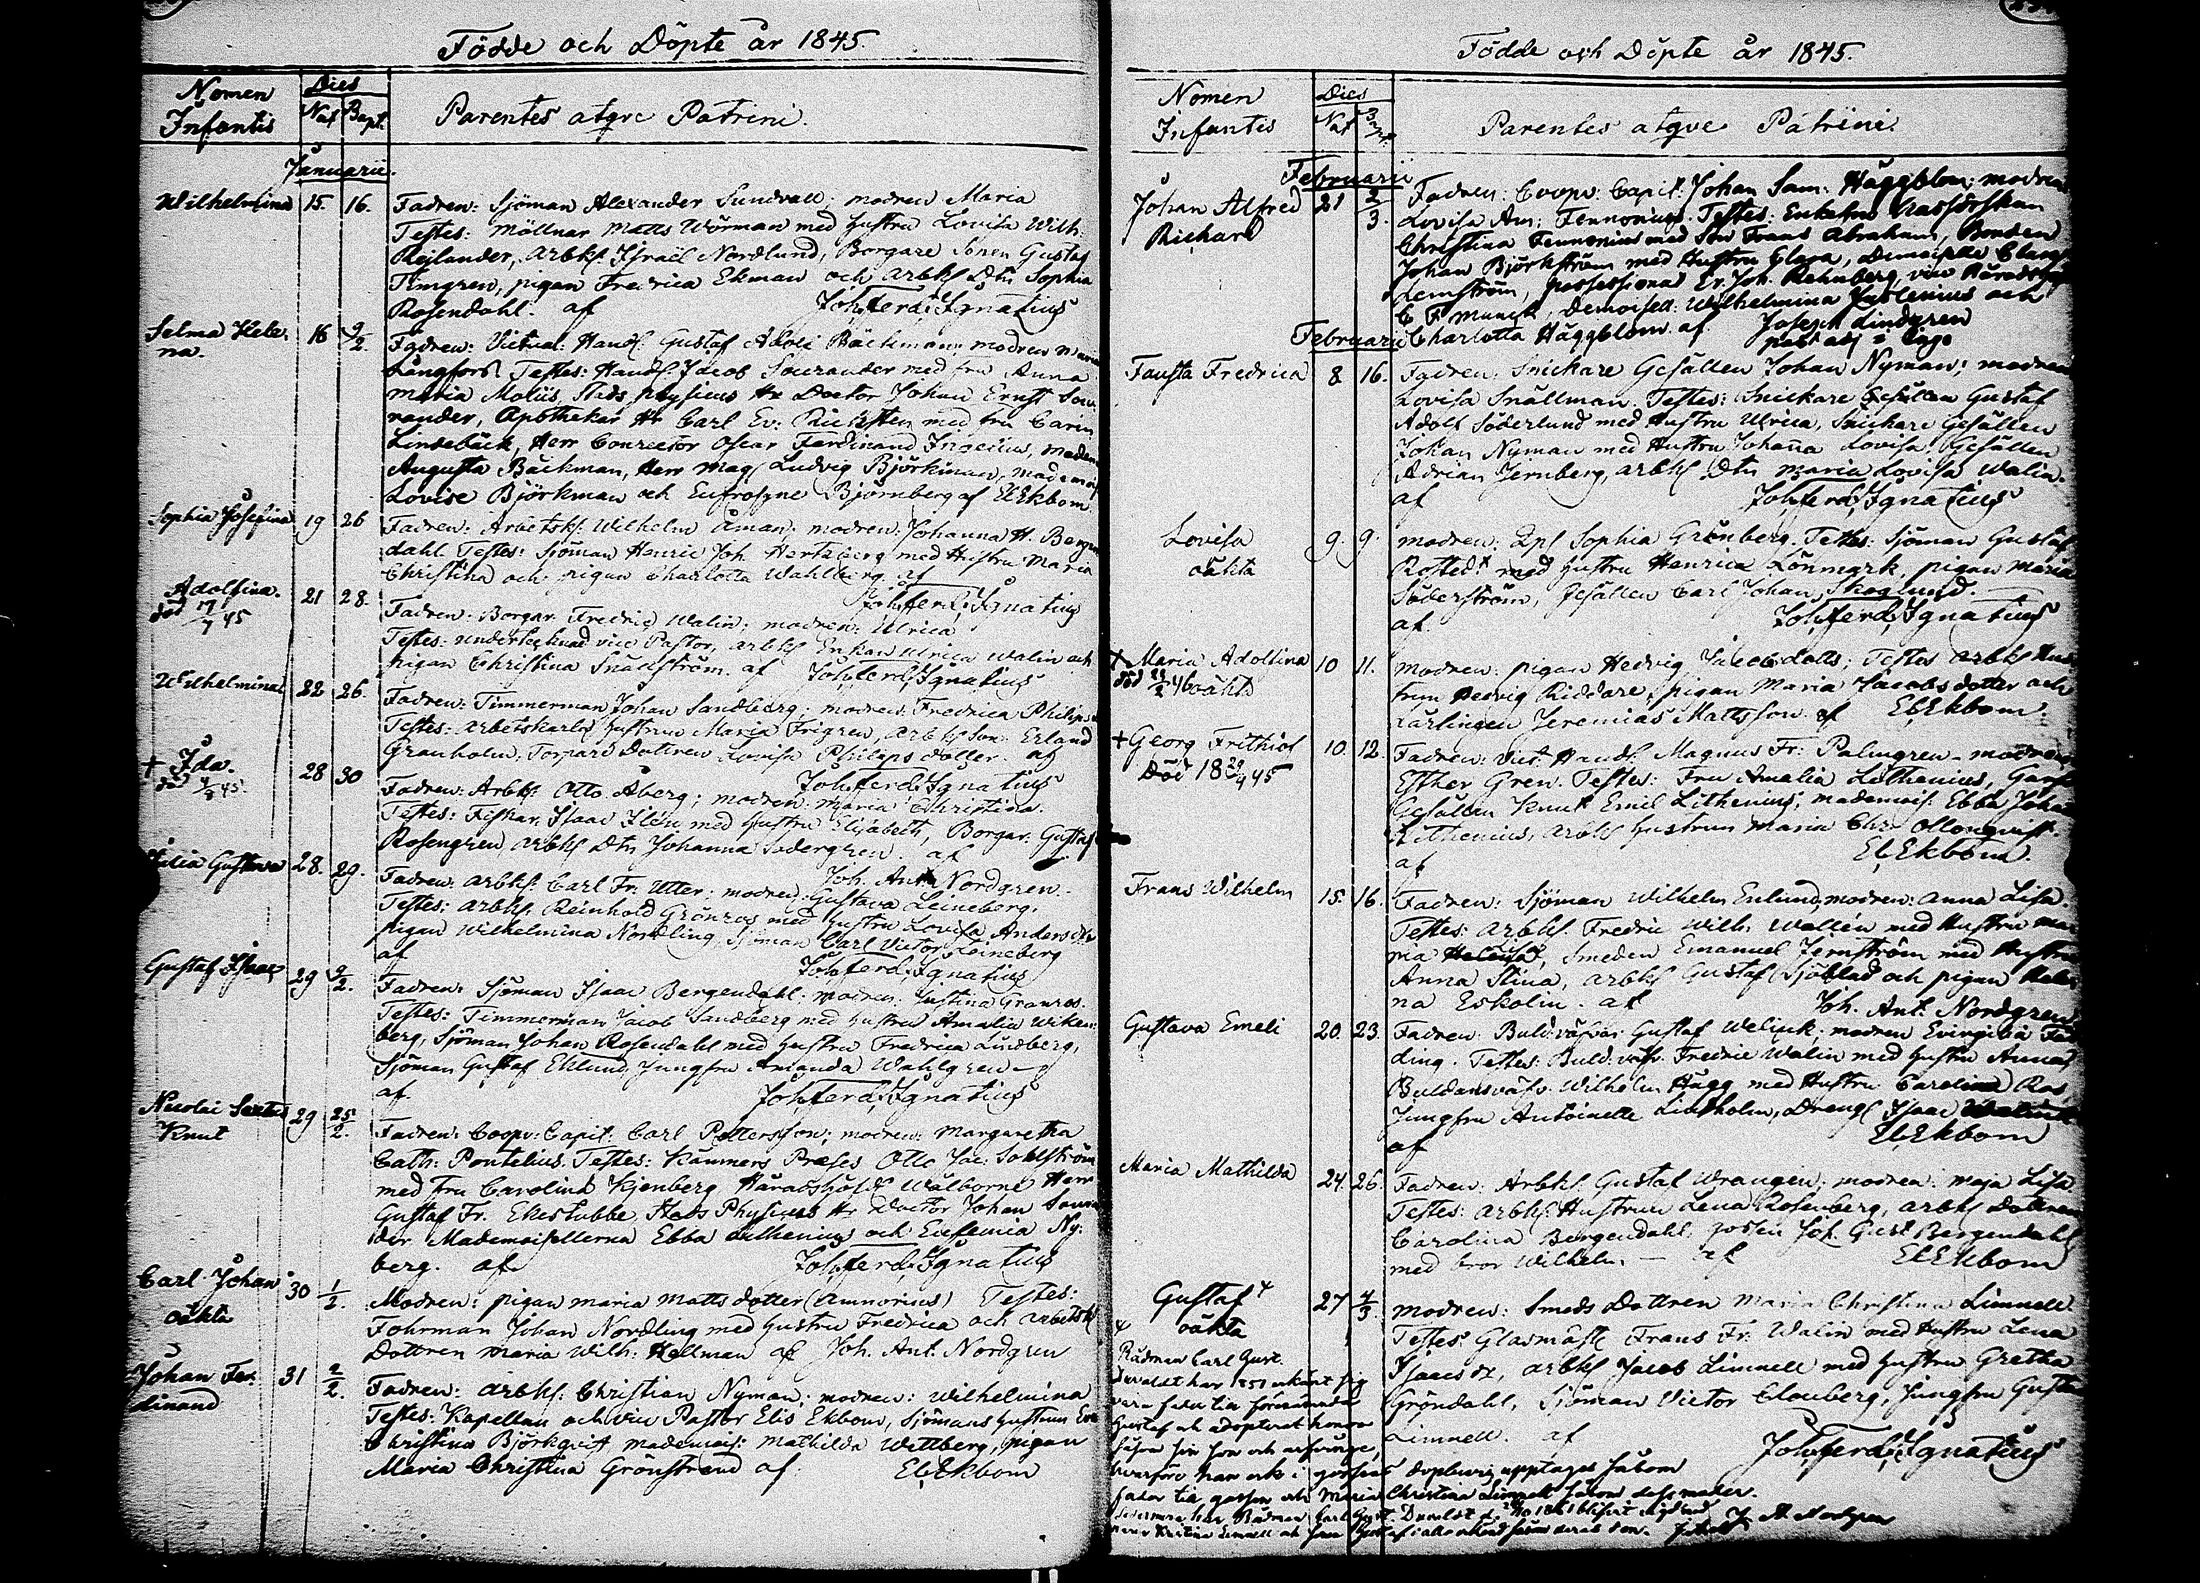 Födde och Döpte år 1845.
Nomen Infantis
Dies
Nat Bapt.
Parentes atqve Patrini.
Januarii.
Wilhelmina 15. 16. Fadren: Sjöman Alexander Sundvall; modren Maria
Testes: Möllnar Matts Wörman med hustru Lovisa Wilh:
Rejlander, arbks. Israël Nordlund, Borgare Sonen Gustaf
Timgren, pigan Fredrica Ekman och arbks Dtr Sophia
Rosendahl. af Joh. Ferd. Ignatius
Selma Hele- 16 9/2 Fadren: Victual: Handl: Gustaf Adolf Bäckman; modren Maria
na. Långfors Testes: Handl. Jacob Sourander med fru Anna
Maria Moliis, Stads physicus Hr Doctor Johan Ernst Sou-
rander, Apothekar Hr Carl Ev: med fru Carin
Lindebäck, Herr Conrector Oscar Ferdinand Ingelius, madem:
Augusta Bäckman, Herr Mag: Ludvig Björkman, mademois
Lovise Björkman och Eufrosyne Björnberg af El. Ekbom
Sophia Josefina 19 26 Fadren: Arbetsk. Wilhelm Åman; modren: Johanna H. Bergen-
dahl. Testes: Sjöman Henric Joh. Hertzberg med Hustru Maria
Christina och pigan Charlotta Wahlberg. af
Joh. Ferd. Ignatius
Adolfina. 21 28. Fadren: Borgar. Fredric Walin; modren: Ulrica
död 19/7 45 Testes: undertecknad vice Pastor, arbks Enkan Ulrica Walin och
pigan Christina Snällström. af Joh. Ferd. Ignatius
Wilhelmina 22 26. Fadren: Timmerman Johan Sandberg; modren: Fredrica Philips
Testes: arbetskarls hustrun Maria Frigren, arbks Son: Erland
Granholm, Torpare Dottren Lovisa Philips dotter. af
Joh. Ferd. Ignatius
+ Ida. 28 30 Fadren: Arbks. Otto Åberg; modren: Maria Christina.
död 45. Testes: Fiskar. Isaac Ilén med hustru Elisabeth, Borgar. Gustaf
Rosengren, arbks Dtr Johanna Södergren. af
Joh. Ant. Nordgren.
Julia Gustava 28. 29. Fadren: arbks. Carl Fr. Utter; modren: Gustava Leineberg.
Testes: arbks. Reinhold Grönros med hustru Lovisa Andersdtr
pigan Wilhelmina Nordling, Sjöman Carl Victor Leineberg
af Joh. Ferd. Ignatius
Gustaf Isaac 29 9/2. Fadren: Sjöman Isaac Bergendahl; modren: Justina Granros.
Testes: Timmerman Jacob Sandberg med hustru Amalia Wiken-
berg, Sjöman Johan Rosendahl med hustru Fredrica Lundberg,
Sjöman Gustaf Eklund, Jungfru Amanda Wahlgren
af Joh. Ferd. Ignatius
Nicolai Sextus 29 25/2. Fadren: Coopv: Capit: Carl Pettersson; modren: Margaretha
Knut Cath: Pontelius. Testes: Kämners Præses Otto Jac: Sohlström
med fru Carolina Kjenberg Häradshöfd. Wälborne Herr
Gustaf Fr. Ekestubbe, Stads Physicus Hr Doctor Johan
Mademoisellerna Ebba Lithenius och Eufemia Ny-
berg. af Joh. Ferd. Ignatius
Carl Johan 30 1/2. Modren: pigan Maria Matts dotter (Amnorius) Testes:
oäkta Fohrman Johan Nordling med hustru Fredrica och arbetsk
Dottren Maria Wilh: Hellman af Joh. Ant. Nordgren
Johan Fer- 31 2/2. Fadren: arbks. Christian Nyman; modren: Wilhelmina
dinand Testes: Kapellan och vice Pastor Elis Ekbom, Sjömans hustrun Eva
Christina Björkqvist mademois: Mathilda Wettberg, pigan
Maria Christina Grönstrand af El. Ekbom
Födde och Döpte år 1845.
Nomen Infantis
Dies
Nat Bapt.
Parentes atqve Patrini.
Februarii
Johan Alfred 21 2/3. Fadren: Coopv: Capit: Johan Sam: Häggblom; modren
Richard Lovisa An: Fennonius. Testes: Enkefru
Christina Fennonius med Son Frans Abraham, Bonden
Johan Björkström med Hustru Clara, Demoiselle
possessionat Er. Joh. Rehnberg, vice Häradshöf
C F Munck, Demoisell: Wilhelmina Juslenius och
Charlotta Häggblom. af Joseph Lindgren
past adj i
Februarii
Fausta Fredrica 8 16. Fadren: Snickare Gesällen Johan Nyman; modren
Lovisa Snällman. Testes: Snickare Gesällen Gustaf
Adolf Söderlund med Hustru Ulrica, Snickare Gesällen
Johan Nyman med Hustru Johanna Lovisa, Gesällen
Adrian Jernberg, arbks Dtr Maria Lovisa Walin.
af Joh. Ferd. Ignatius
Lovisa 9. 9. modren: Qps Sophia Grönberg. Testes: Sjöman Gustaf
oäkta Rostedt med hustru Henrica Lönmark, pigan Maria
Söderström, Gesällen Carl Johan Skoglund.
af. Joh. Ferd. Ignatius
+ Maria Adolfina 10 11. modren: pigan Hedvig Jacobsdotts; Testes arbks Hus-
död 46 oäkta trun Hedvig Riddare, pigan Maria Jacobs dotter och
Karlingen Jeremias Mattsson. af El. Ekbom
+ Georg Frithiof 10. 12. Fadren: Vict: Handl. Magnus Fr: Palmgren, modren
Död 18 29/4 45 Esther Gren. Testes: Fru Amalia Lithenius, Garf
Gesällen Knut Emil Lithenius, mademois: Ebba Joha
Lithenius, arbks hustrun Maria Chr: Ollonqvist
af El. Ekbom.
Frans Wilhelm 15. 16. Fadren: Sjöman Wilhelm Enlund, modren: Anna Lisa.
Testes: arbks. Fredric Wilh: Wallén med Hustru Ma-
ria Helena, Smeden Emanuel Jernström med Hustru
Anna Stina, arbks Gustaf Sjöblad och pigan Hele
na Eskolin. af Joh. Ant. Nordgren
Gustava Emeli 20. 23. Fadren: Buld:väfvar: Gustaf Welijck; modren
ding. Testes: Buld:väfv. Fredric Walin med hustru Anna
Buldansväfv: Wilhelm Hägg med Hustru Carolina Ros
Jungfru Antoinette Lindholm, Drengs Isaac
af El. Ekbom
Maria Mathilda 24. 26. Fadren: Arbks. Gustaf Wrangén; modren: Maja Lisa
Testes: arbks. Hustrun Lena Rosenberg, arbks Dottren
Carolina Bergendahl, gossen Joh. Gust Bergendahl
med bror Wilhelm. af El. Ekbom
Gustaf 27 4/3. modren: Smeds Dottren Maria Christina Limnell
oäkta Testes: Glasmäst. Frans Fr: Walin med Hustru Lena
Isaacsdr, arbks Jacob Limnell med hustru Gretha
Gröndahl, Sjöman Victor Clouberg, Jungfru Gusta
Limnell. af Joh. Ferd. Ignatius
Rådman Carl Gust.
har 1851 erkänt sig
vara fader til förenämnde
Gustaf och adopterat honom
såsom sin son och arfvinge,
hvarföre han ock i gossens dopbevis upptages såsom
fader til gossen och Maria Christina Limnell såsom dess moder.